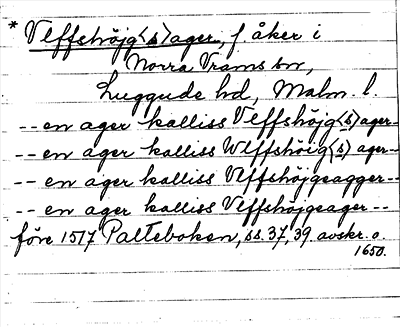 * Vlffshöjg⟨s⟩ager, f åker i
Norra Vrams sn,
Luggude hd, Malm. l.
-- en ager kalliss Vlffshöjg⟨s⟩ager--
-- en ager kalliss Wlffshöig⟨s⟩ ager--
-- en ager kalliss Vlffshöjgsagger--
-- en ager kalliss Vlffshöjgsager--
före 1517 Palteboken, ss. 37, 39. avskr. o.
1650.